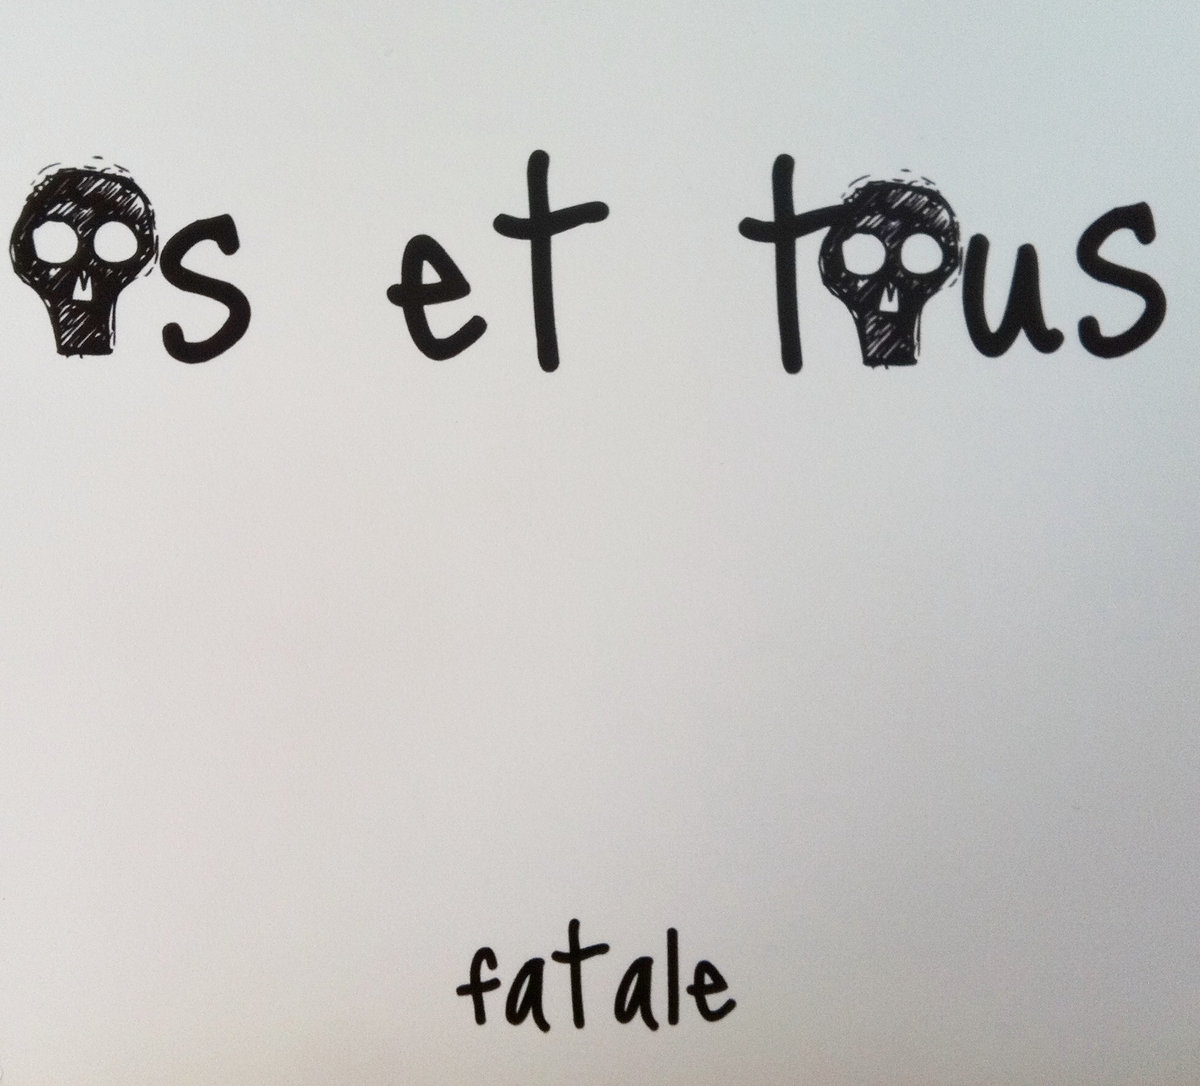 os et tous
fatale